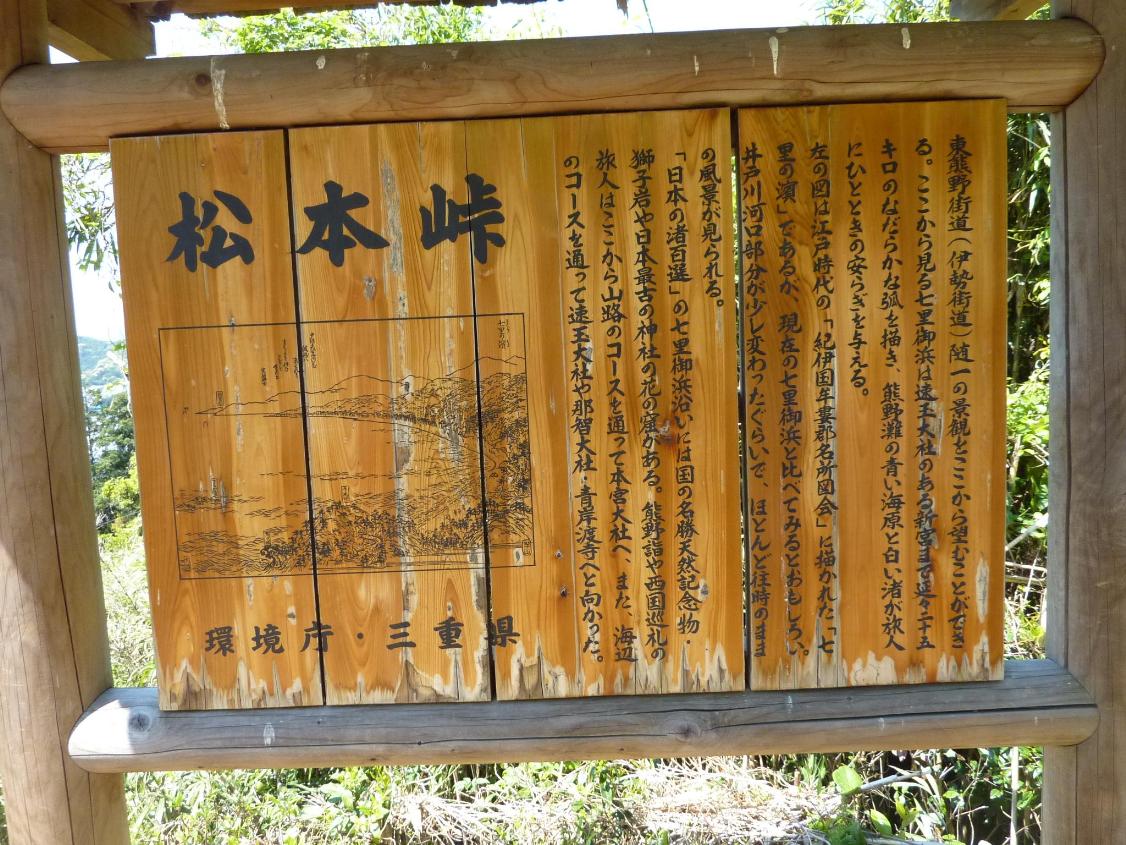 松本峠
東熊野街道(伊勢街道)随一の景観をここから望むことができ
る。ここから見る七里御浜は速玉大社のある新宮まで延々二十五
キロのなだらかな弧を描き、熊野灘の青い海原と白い渚が旅人
にひとときの安らぎを与える。
左の図は江戸時代の「紀伊国牟婁郡名所図会」に描かれた「七
里の濱」であるが、現在の七里御浜と比べてみるとおもしろい。
井戸川河口部分が少し変わったぐらいで、ほとんど往時のまま
の風景が見られる。
「日本の渚百選」の七里御浜沿いには国の名勝天然記念物・
獅子岩や日本最古の神社の花の窟がある。熊野詣や西国巡礼の
旅人はここから山路のコースを通って本宮大社へ、また、海辺
のコースを通って速玉大社や那智大社・青岸渡寺へと向かった。
環境庁・三重県